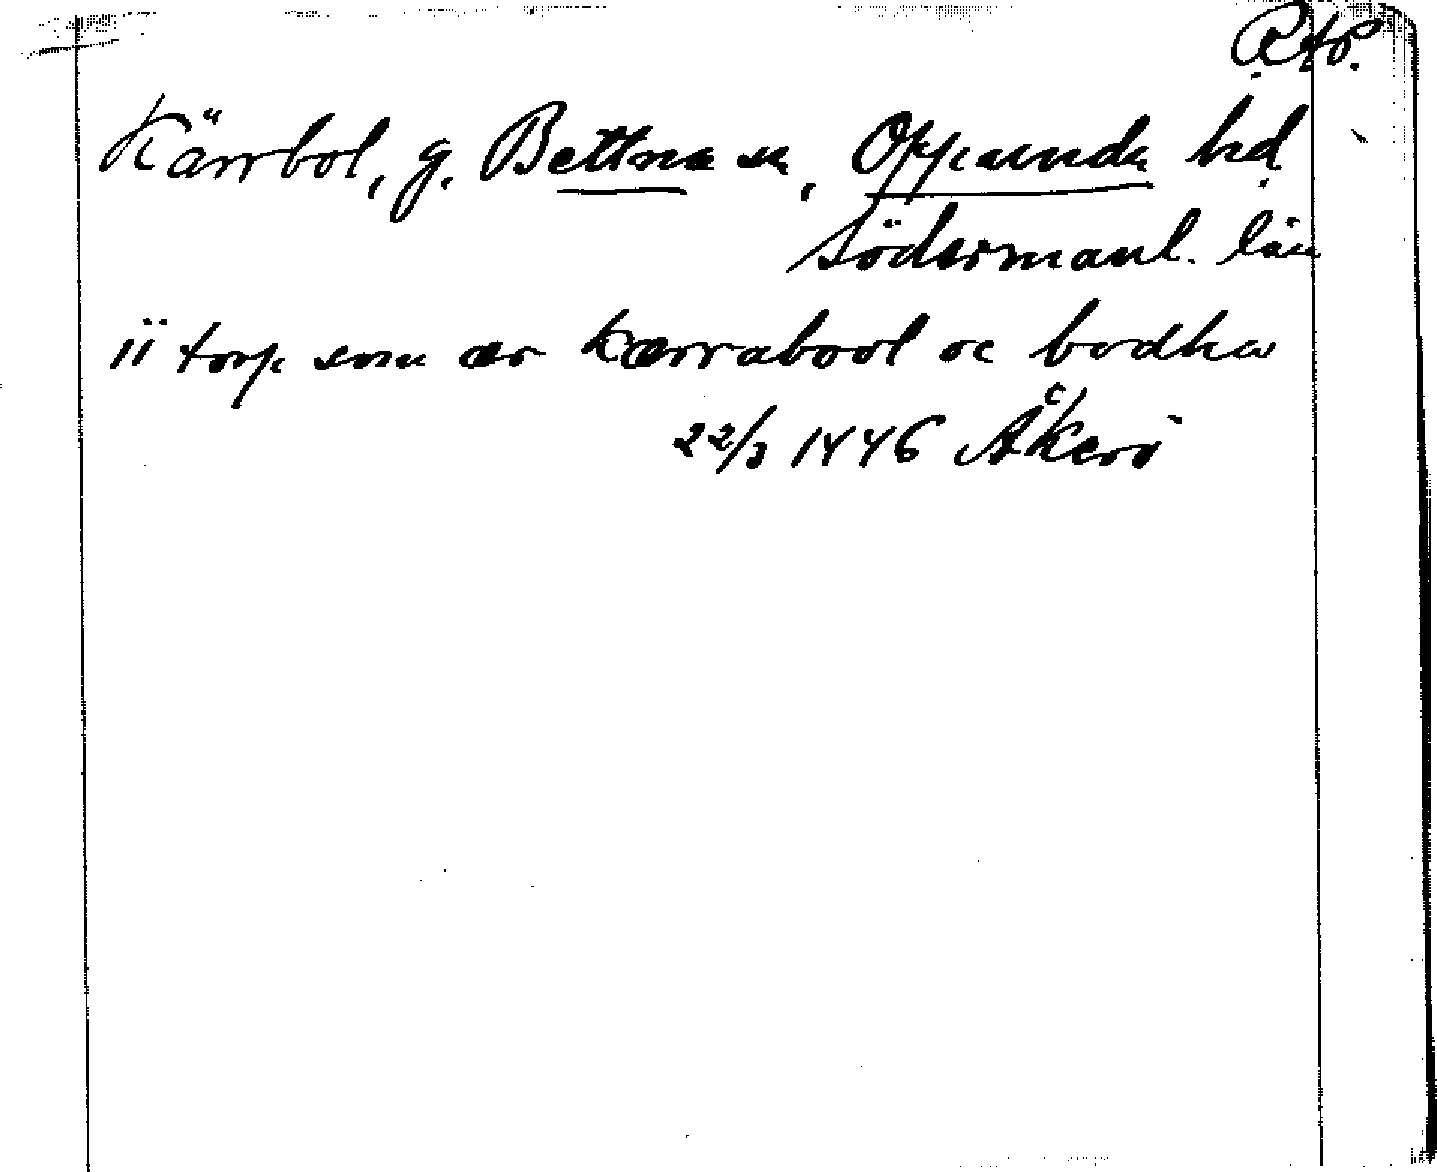 R.A.P.
Kärrbol, g. Bettna sn, Oppunda hd
Södermanl. län
ii torp som ær kærrabool oc bodha
22/3 1446 Åkerö